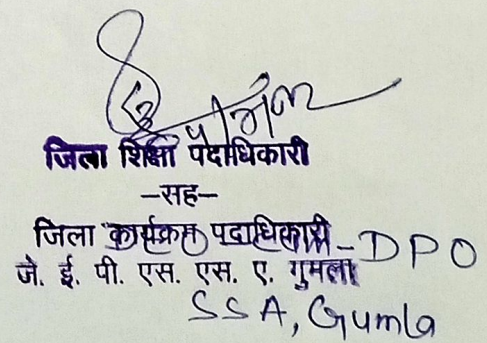 जिला शिक्षा पदाधिकारी
–सह–
जिला कार्यक्रम पदाधिकारी – DPO
जे. ई. पी. एस. एस. ए. गुमला
SSA, Gumla